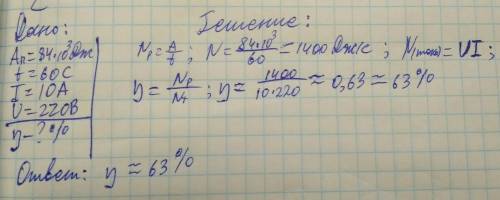 Дано:
Aп=84·10³Дж
t=60С
I=10А
U=220В
η-?%
Решение:
Nр=A/t; N=84·10³/60=1400Дж/с; N(полн)=UI;
η=Nр/Nт; η=1400/10·220≈0,63≈63%
Ответ: η≈63%